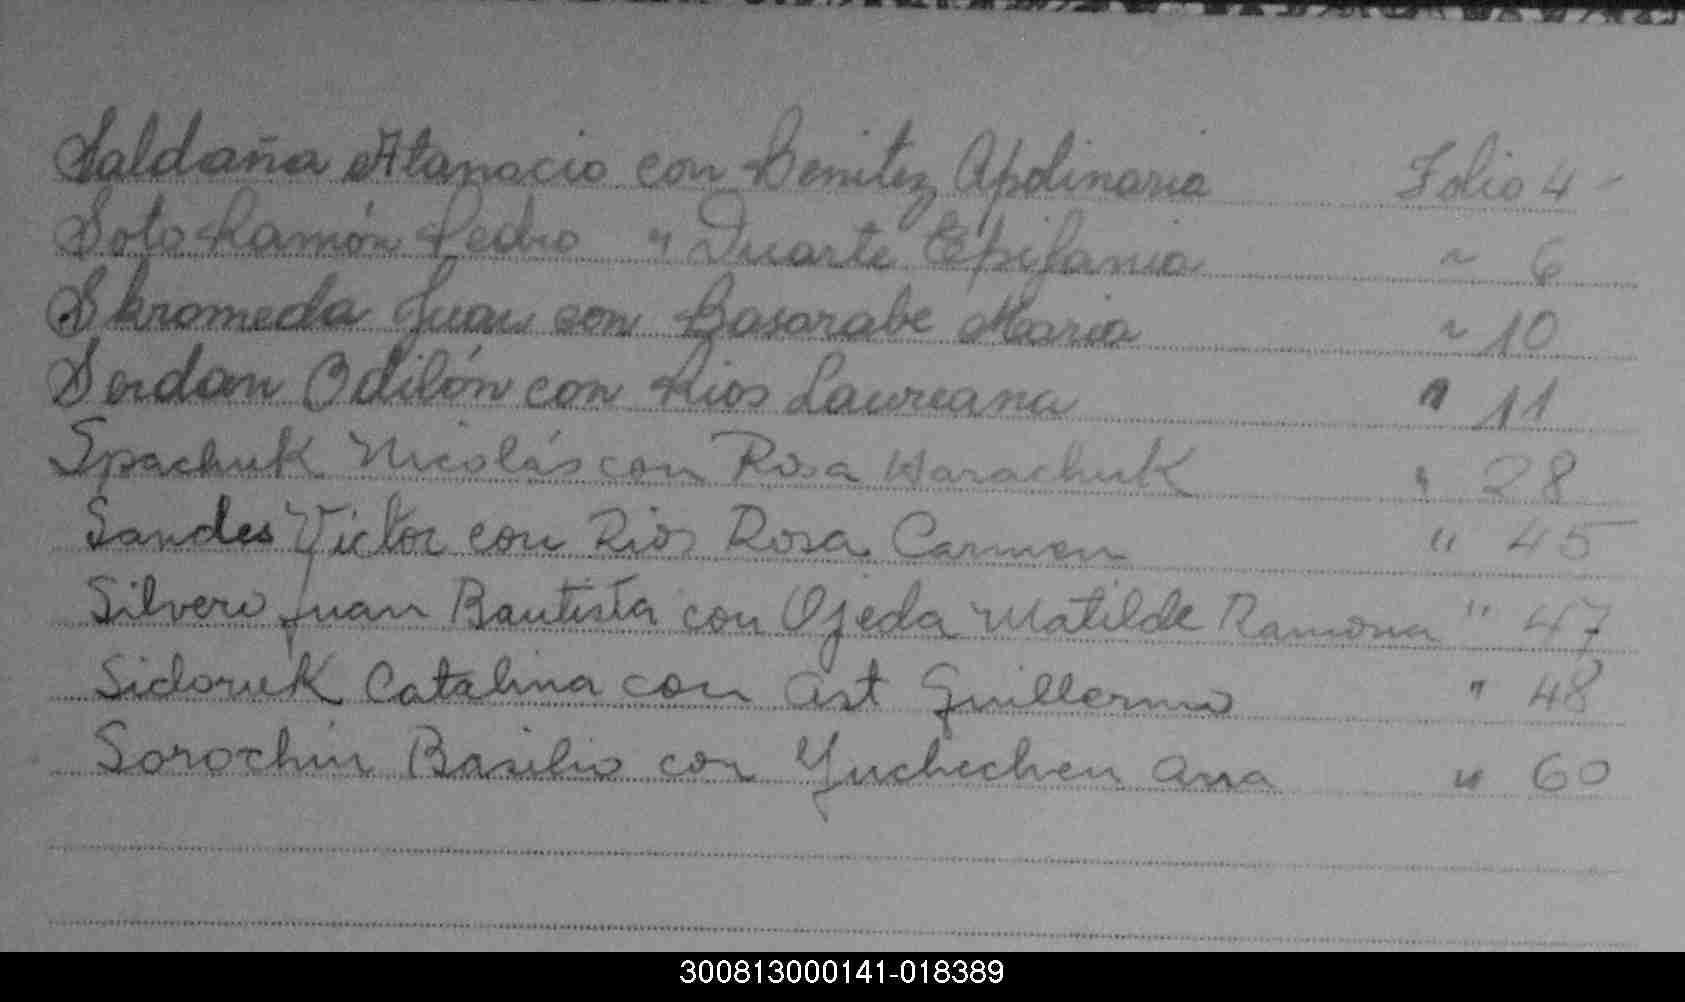 Saldaña Atanacio con Benitez Apolinaria Folio 4 -
Soto Ramón Pedro " Duarte Epifania ~ 6
Skromeda Juan con Basarabe Maria ~ 10
Serdan Odilón con Rios Laureana " 11
Spachuk Nicolás con Rosa Warachuk " 28
Sandes Victor con Rios Rosa Carmen " 45
Silvero Juan Bautista con Ojeda Matilde Ramona " 47
Sidoruk Catalina con Ast Guillermo " 48
Sorochin Basilio con Yuchechen Ana " 60
300813000141-018389